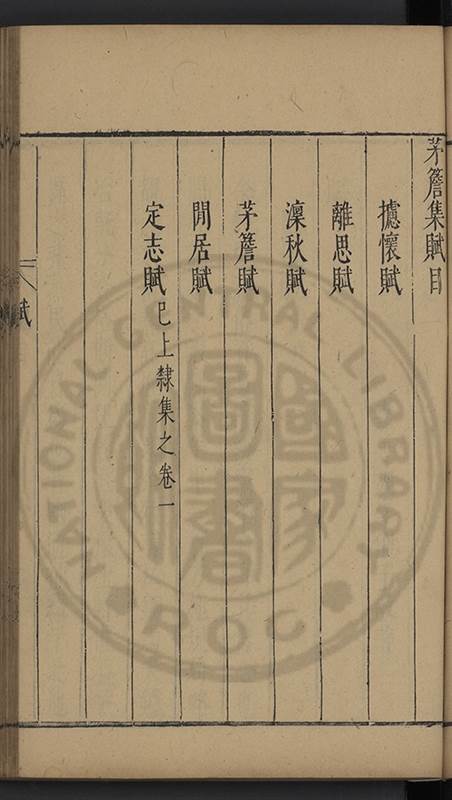 茅簷集賦目
攄懷賦
離思賦
澟秋賦
茅簷賦
閒居賦
定志賦 已上隸集之卷一
賦
國家圖書
NATIONAL CENTRAL LIBRARY
ROC